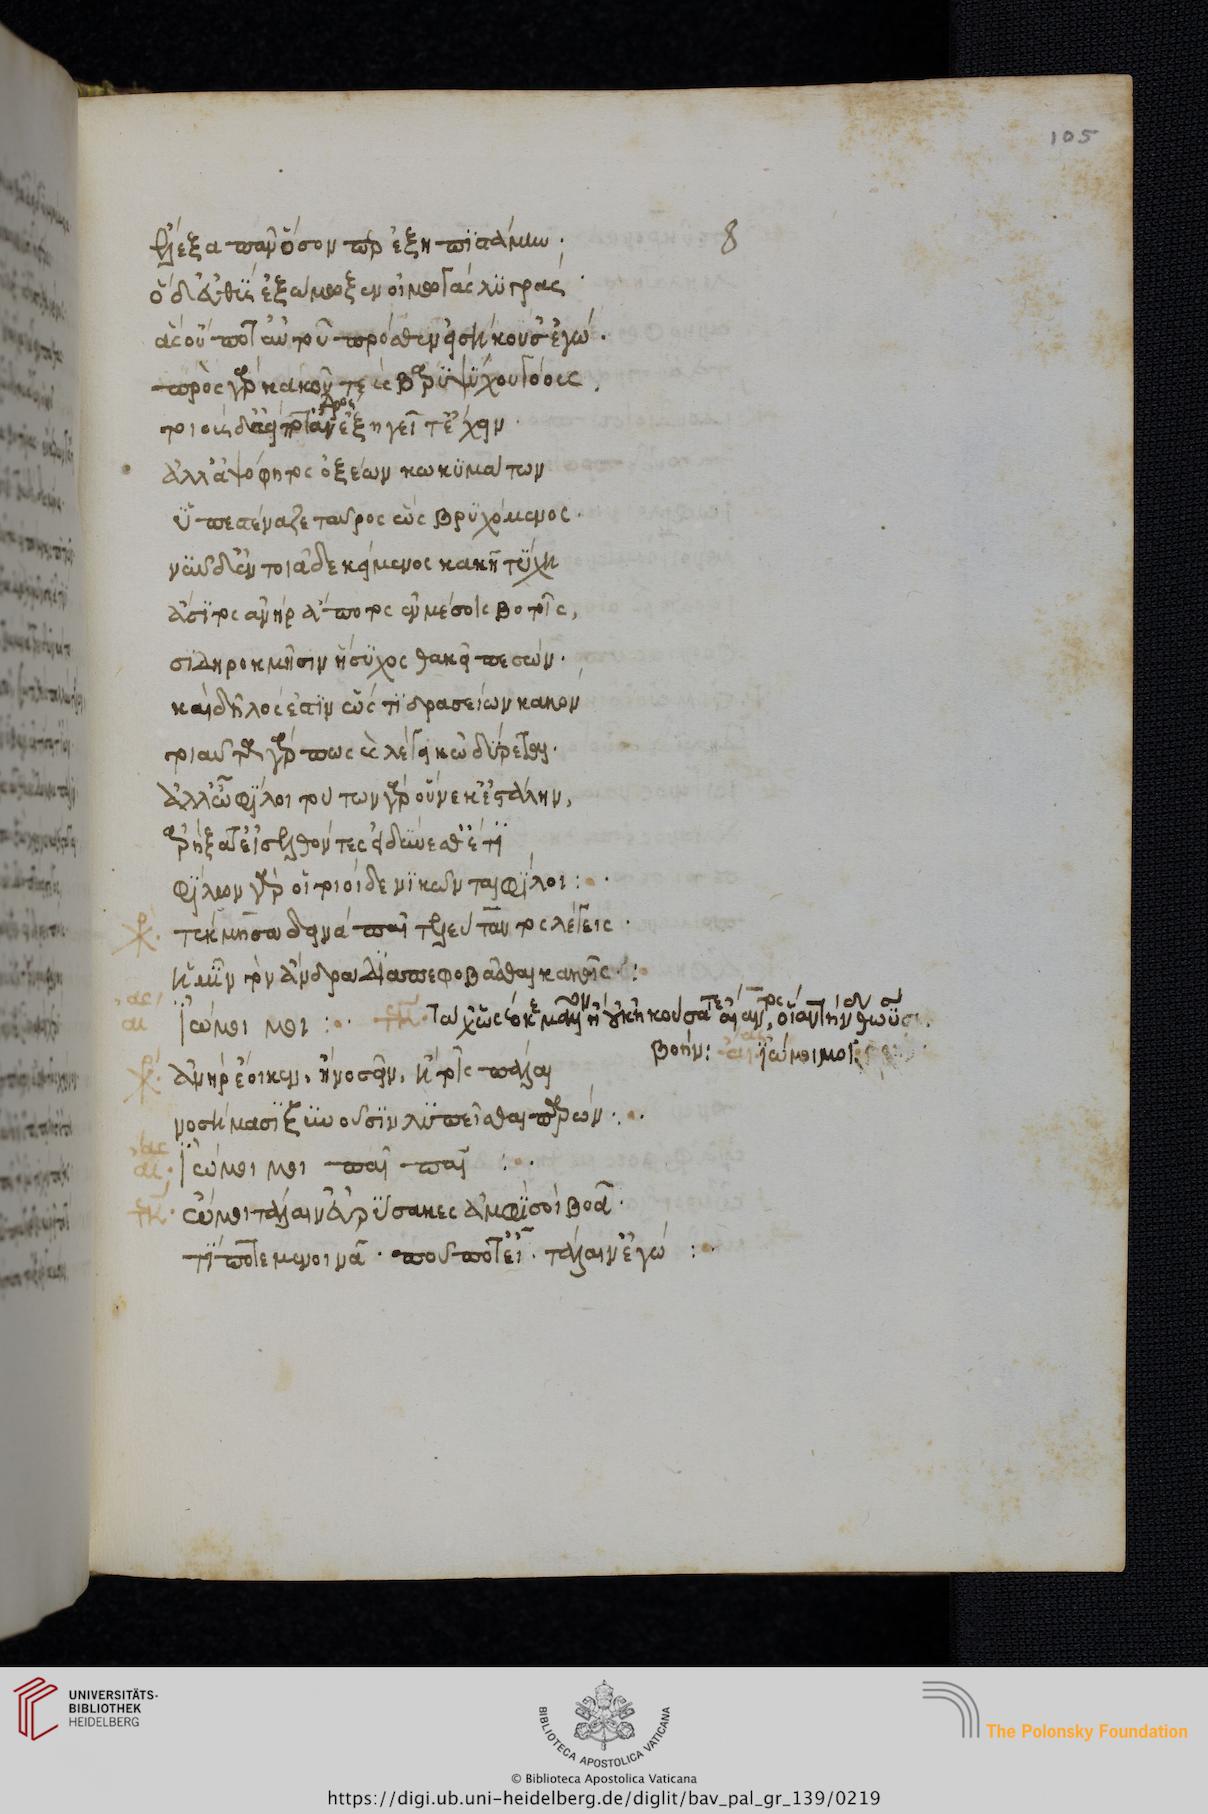 105
κἄλεξα πᾶν ὅσον περ ἐξηπιστάμην·
ὁ δ' εὐθὺς ἐξώμωξεν οἰμωγὰς λυγρὰς
ἃς οὔ ποτ' αὐτοῦ πρόσθεν εἰσήκουσ' ἐγώ.
πρὸς γὰρ κακοῦ τε καὶ βαρυψύχου γόους
τοιούσδ' ἀεί ποτ' ἀνδρὸς ἐξηγεῖτ' ἔχειν·
ἀλλ' ἀψόφητος ὀξέων κωκυμάτων
ὑπεστέναζε ταῦρος ὣς βρυχόμενος·
νῦν δ' ἐν τοιᾶδε κείμενος κακῆ τύχη
ἄσιτος ἀνὴρ ἄποτος ἐν μέσοις βοτοῖς,
σιδηροκμῆσιν ἥσυχος θακεῖ πεσών·
καὶ δῆλός ἐστιν ὥς τι δρασείων κακόν
τοιαῦτα γάρ πως καὶ λέγει κὠδύρεται·
ἀλλ' ὦ φίλοι τούτων γὰρ οὕνεκ' ἐστάλην,
ἀρήξατ' εἰσελθόντες εἰ δύνασθ' ἔτι
φίλων γὰρ οἱ τοιοίδε νικῶνται φίλοι:
χο. τέκμησσα δεινὰ παῖ τελεύταντος λέγεις·
ἡμῖν τὸν ἄνδρα διαπεφοβάσθαι κακοῖς:
αἴας ἰώ μοι μοι: τεκ. τάχ' ὡς ἔοικε μᾶλλον ἢ οὐκ ἠκούσατε αἴαντος, οἵαν τήν
βοήν: αἴας ἰώ μοι μοι:
χο. ἀνὴρ ἔοικεν, ἢ νοσεῖν, ἢ τοῖς πάλαι
νοσήμασι ξυνοῦσιν λυπεῖσθαι παρών:
αἴας ἰώ μοι μοι παῖ παῖ:
τεκ. ὤμοι τάλαιν' εὐρύσακες ἀμφὶ σοὶ βοᾶ·
τί ποτε μενοινᾶ· ποῦ ποτ' εἶ· τάλαιν' ἐγώ:
UNIVERSITÄTS-
BIBLIOTHEK
HEIDELBERG
BIBLIOTECA APOSTOLICA VATICANA
The Polonsky Foundation
© Biblioteca Apostolica Vaticana
https://digi.ub.uni-heidelberg.de/diglit/bav_pal_gr_139/0219